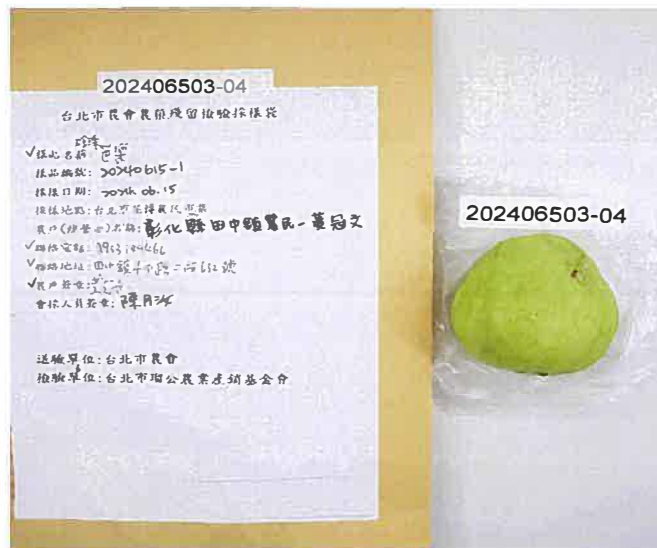 202406503-04
台北市農會農藥殘留檢驗採樣袋
✓樣品名稱: 珍珠芭樂
樣品編號: 20240615-1
採樣日期: 2024.06.15
採樣地點: 台北市花博農民市集
農戶(經營者)名稱: 彰化縣田中鎮農民-黃冠文
✓聯絡電話:
✓聯絡地址: 田中鎮
✓農戶簽章:
會採人員簽章: 陳月
送驗單位: 台北市農會
檢驗單位: 台北市瑠公農業產銷基金會
202406503-04